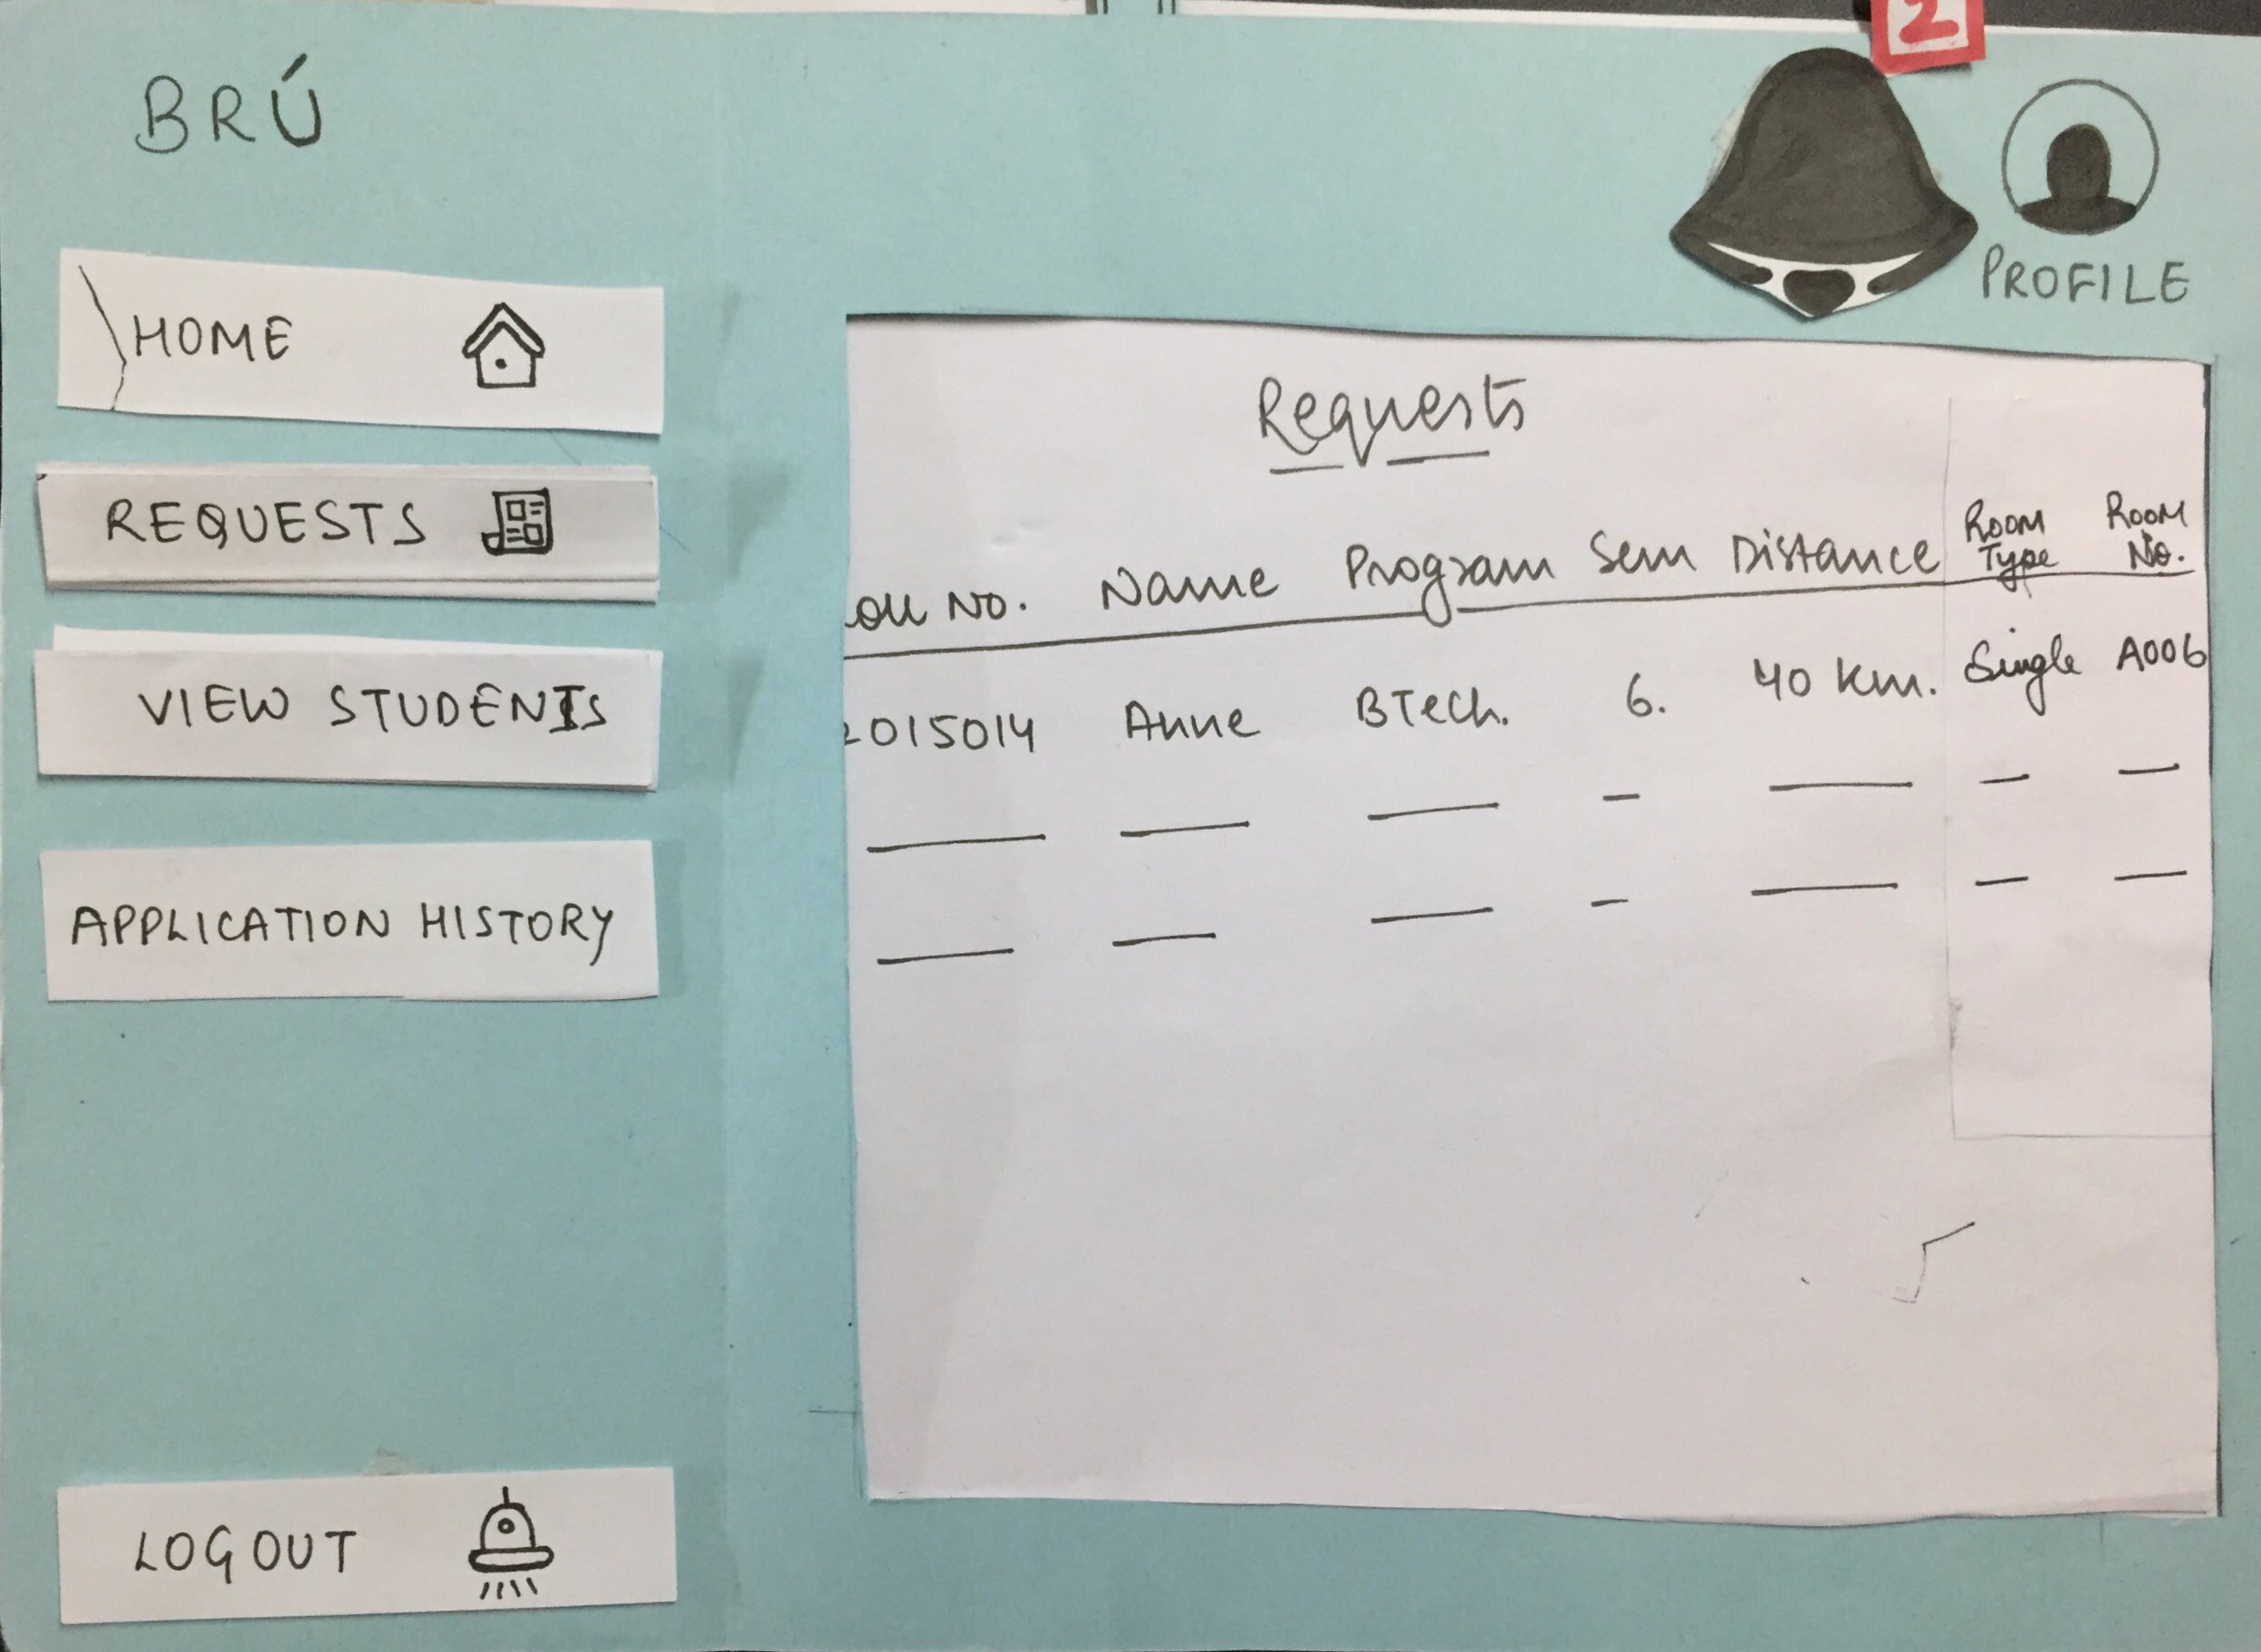 BRÚ
2
PROFILE
HOME
REQUESTS
VIEW STUDENTS
APPLICATION HISTORY
LOGOUT
Requests
oll No. Name Program Sem Distance Room Type Room No.
2015014 Anne BTech. 6. 40 Km. Single A006